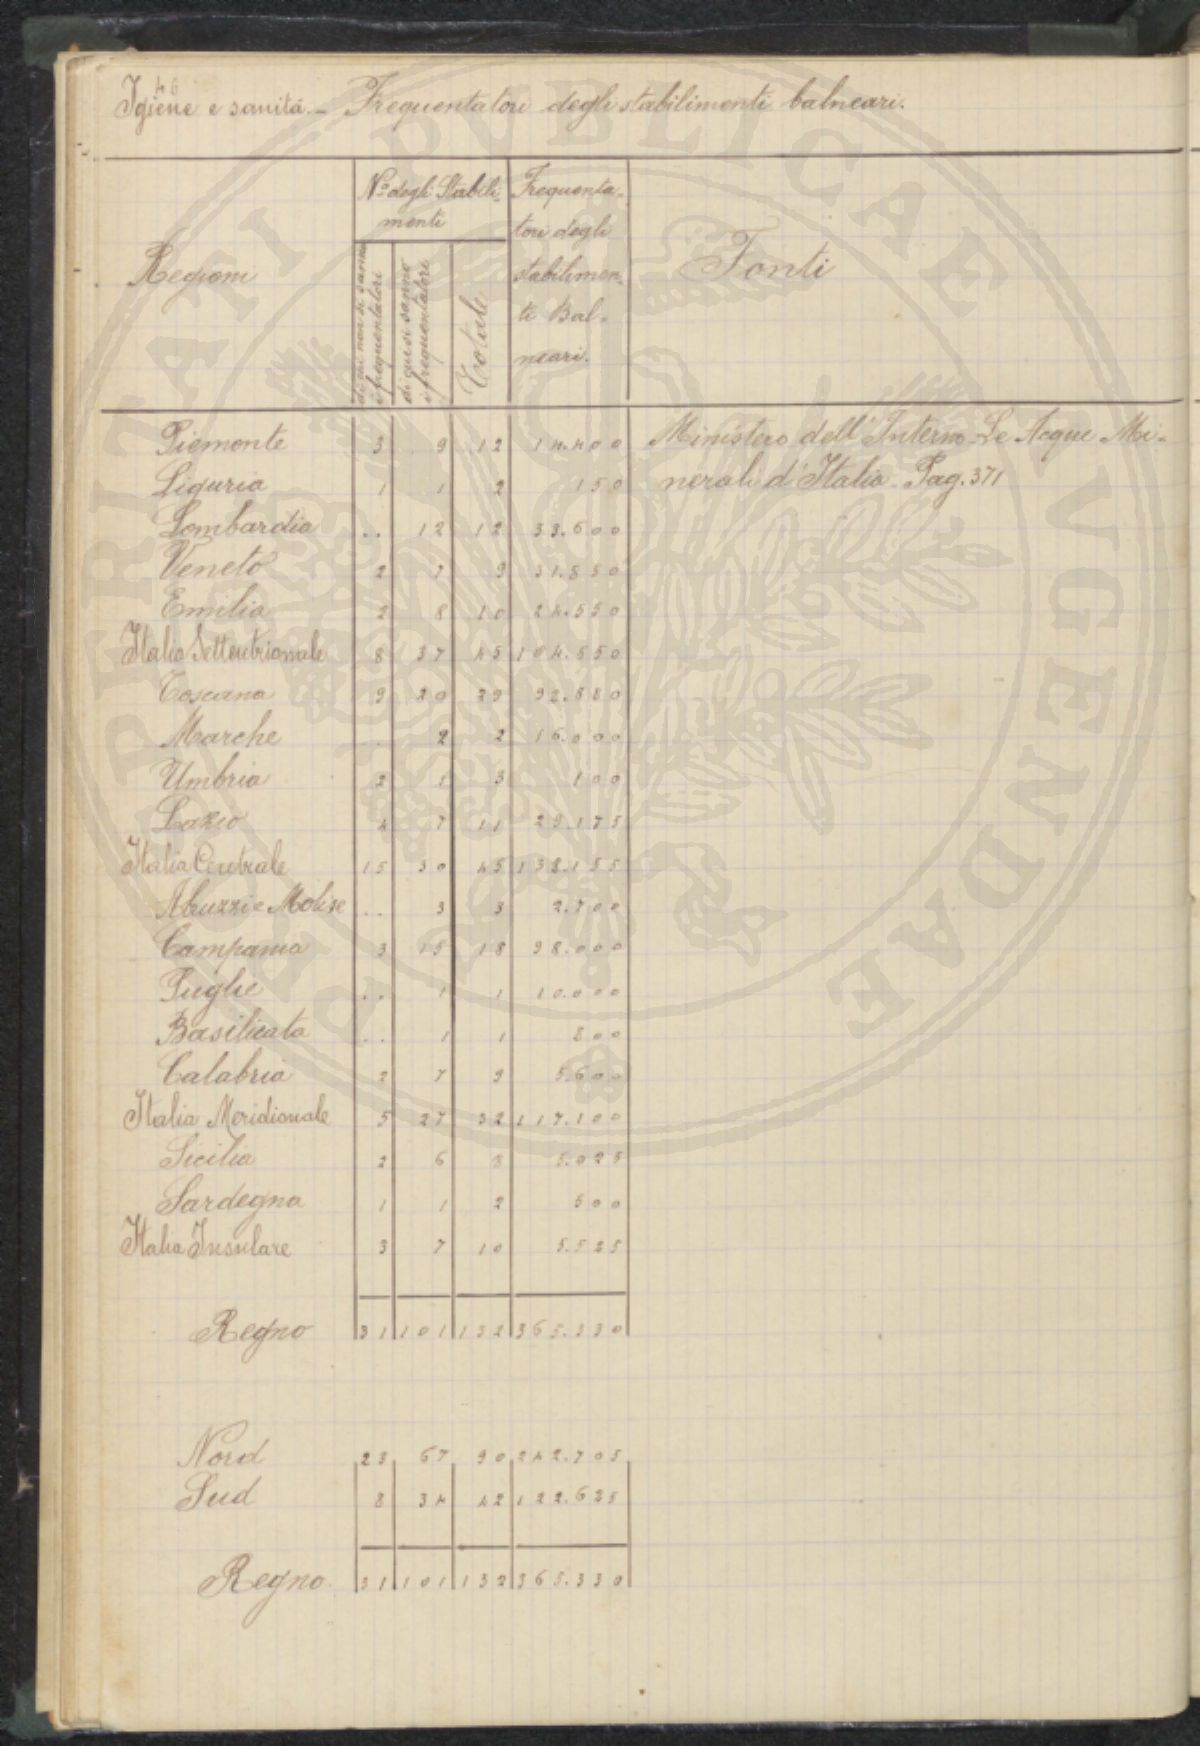 46
Igiene e sanità. - Frequentatori degli stabilimenti balneari.
Regioni
Nº degli Stabili-
menti
di cui non si sanno
i frequentatori
di cui si sanno
i frequentatori
Totale
Frequenta-
tori degli
stabilimen-
ti Bal-
neari.
Fonti
Piemonte 3 9 12 14.400 Ministero dell'Interno - Le Acque Mi-
Liguria 1 1 2 150 nerali d'Italia - Pag. 371
Lombardia .. 12 12 33.600
Veneto 2 7 9 31.850
Emilia 2 8 10 24.550
Italia Settentrionale 8 37 45 104.550
Toscana 9 20 29 92.880
Marche .. 2 2 16.000
Umbria 2 1 3 100
Lazio 4 7 11 29.175
Italia Centrale 15 30 45 138.155
Abruzzi e Molise .. 3 3 2.700
Campania 3 15 18 98.000
Puglie .. 1 1 10.000
Basilicata .. 1 1 800
Calabria 2 7 9 5.600
Italia Meridionale 5 27 32 117.100
Sicilia 2 6 8 5.025
Sardegna 1 1 2 500
Italia Insulare 3 7 10 5.525
Regno 31 101 132 365.330
Nord 23 67 90 242.705
Sud 8 34 42 122.625
Regno 31 101 132 365.330
PUBLICAE AVGENDAE